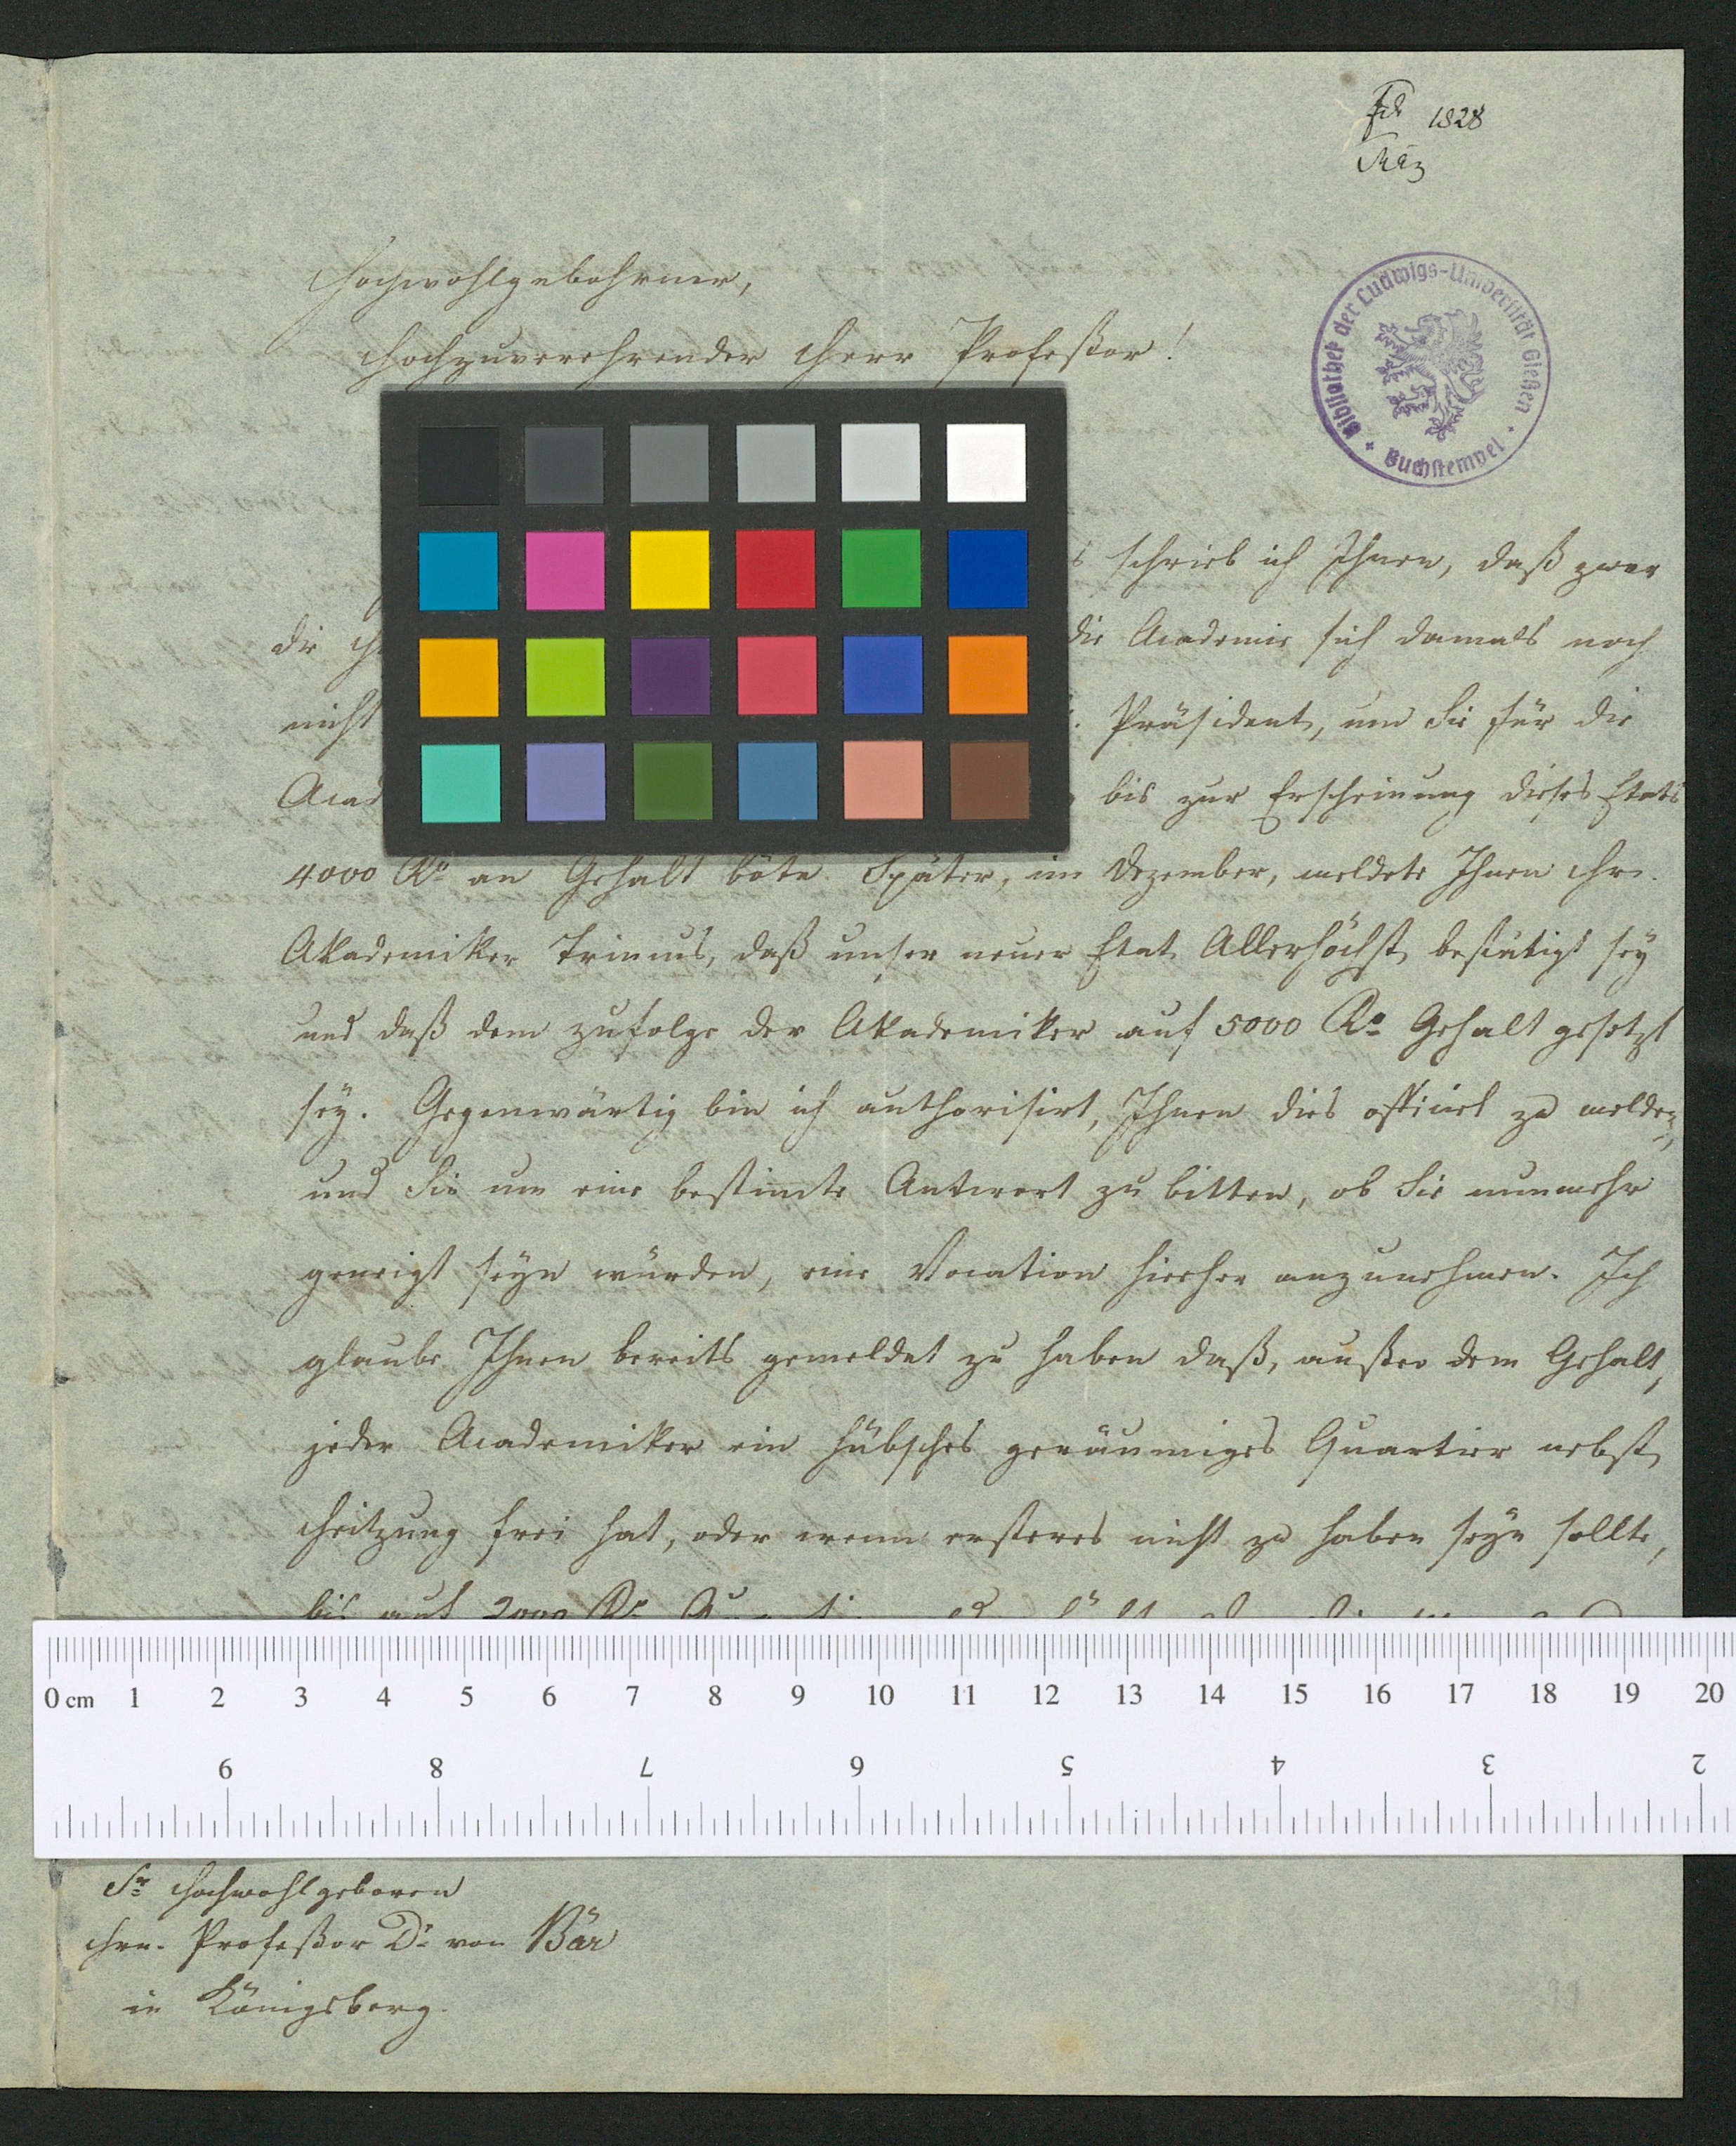 1828
März
Hochwohlgebohrner,
Hochzuverehrender Herr Profeßor!
Bibliothek der Ludwigs-Universität Gießen
Buchstempel
schrieb ich Ihnen, daß zwar
die die Academie sich damals noch
nicht Präsident, um Sie für die
Acad bis zur Erscheinung dieses Etats
4000 Ro an Gehalt böte. Später, im Dezember, meldete Ihnen Hr.
Akademiker Trinius, daß unser neuer Etat Allerhöchst bestätigt sey
und daß dem zufolge der Akademiker auf 5000 Ro Gehalt gesetzt
sey. Gegenwärtig bin ich authorisirt, Ihnen dies officiel zu melden,
und Sie um eine bestimte Antwort zu bitten, ob Sie nunmehr
geneigt seyn würden, eine Vocation hierher anzunehmen. Ich
glaube Ihnen bereits gemeldet zu haben daß, außer dem Gehalt,
jeder Academiker ein hübsches geräumiges Quartier nebst
Heitzung frei hat, oder wenn ersteres nicht zu haben seyn sollte,
bis auf 2000 Ro
0 cm 1 2 3 4 5 6 7 8 9 10 11 12 13 14 15 16 17 18 19 20
9 8 7 6 5 4 3 2
Sr Hochwohlgeboren
Hrn. Profeßor Dr von Bär
in Königsberg.